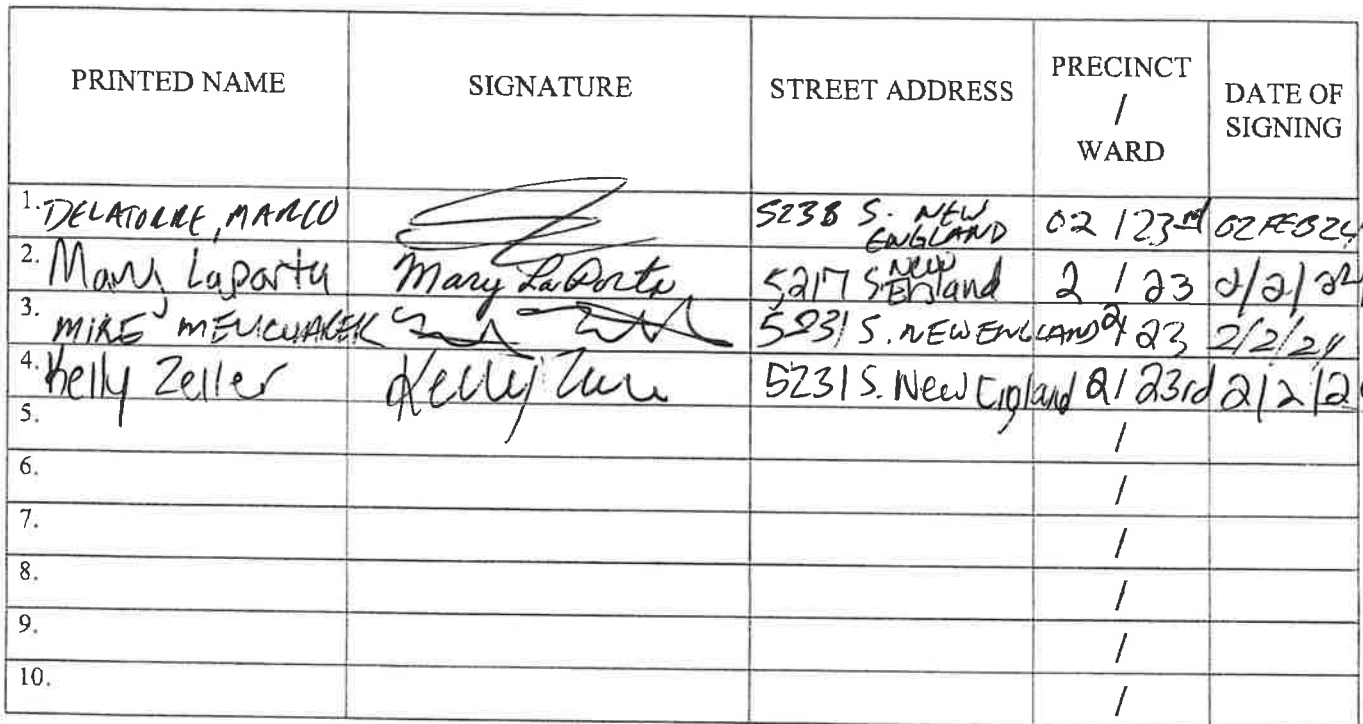 PRINTED NAME SIGNATURE STREET ADDRESS PRECINCT / WARD DATE OF SIGNING
1. DELATORRE, MARCO 5238 S. NEW ENGLAND 02 / 23rd 02 FEB 24
2. Mary Laporta Mary LaPorta 5217 S New England 2 / 23 2/2/
3. MIKE 5231 S. NEW ENGLAND 2/ 23 2/2/24
4. Kelly Zeller Kelly 5231 S. New England 2/ 23rd 2/2/2
5. /
6. /
7. /
8. /
9. /
10. /